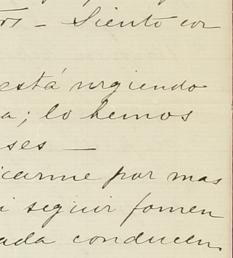 os – Siento cor
está urgiendo
a; lo hemos
ses —
icarme por mas
i seguir fomen
ada conducen